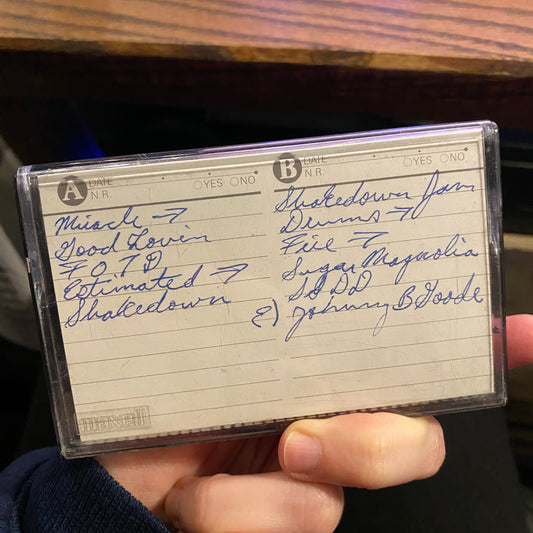 A DATE
N.R. ○YES ○NO
Miracle →
Good Lovin
F O T D
Estimated →
Shakedown
maxell
B DATE
N.R. ○YES ○NO
Shakedown Jam
Drums →
Fire →
Sugar Magnolia
SSDD
E) Johnny B Goode